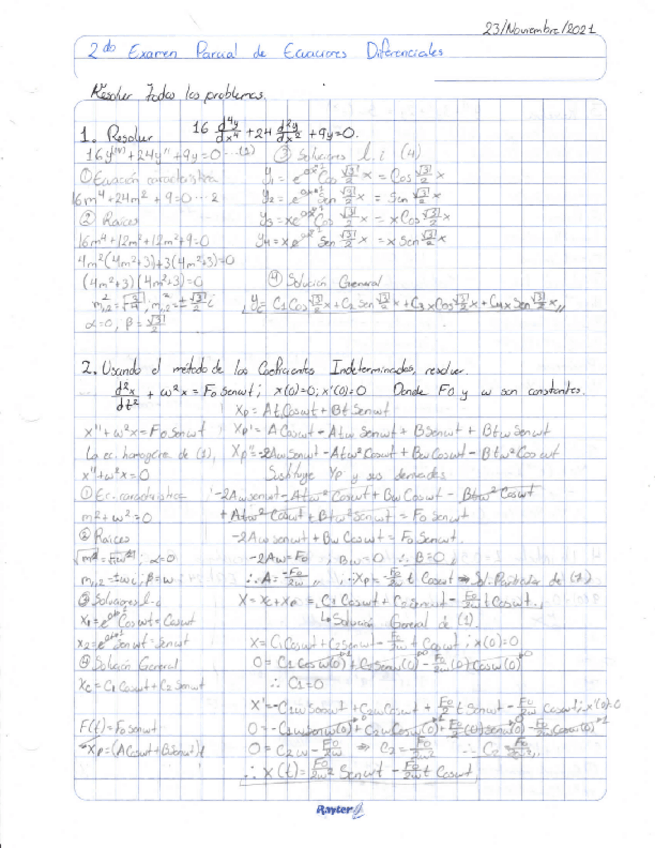 23/Noviembre/2021
2do Examen Parcial de Ecuaciones Diferenciales
Resolver todos los problemas.
1. Resolver 16 d⁴y/dx⁴ + 24 d²y/dx² + 9y = 0.
16y⁽ᴵⱽ⁾ + 24y'' + 9y = 0 ...(1)
① Ecuación característica
16m⁴ + 24m² + 9 = 0 ... 2
② Raíces
16m⁴ + 12m² + 12m² + 9 = 0
4m²(4m²+3) + 3(4m²+3) = 0
(4m²+3)(4m²+3) = 0
α=0, β=√3/2
③ Soluciones l.i (4)
y₁ = e^(0x) Cos √3/2 x = Cos √3/2 x
y₂ = e^(0x) Sen √3/2 x = Sen √3/2 x
y₃ = xe^(0x) Cos √3/2 x = x Cos √3/2 x
y₄ = xe^(0x) Sen √3/2 x = x Sen √3/2 x
④ Solución General
yc = C₁ Cos √3/2 x + C₂ Sen √3/2 x + C₃ x Cos √3/2 x + C₄ x Sen √3/2 x,,
2. Usando el método de los Coeficientes Indeterminados, resolver.
d²x/dt² + ω²x = F₀ Senωt; x(0)=0; x'(0)=0 Donde F₀ y ω son constantes.
x'' + ω²x = F₀ Senωt
La ec. homogénea de (1),
x'' + ω²x = 0
① Ec. característica
m² + ω² = 0
② Raíces
√m² = √-ω²; α=0
m₁,₂ = ±ωi; β=ω
③ Soluciones l.i
x₁ = e^(0t) Cosωt = Cosωt
x₂ = e^(0t) Senωt = Senωt
④ Solución General
xc = C₁ Cosωt + C₂ Senωt
F(t) = F₀ Senωt
xp = (A Cosωt + B Senωt)t
xp = At Cosωt + Bt Senωt
xp' = A Cosωt - Atω Senωt + B Senωt + Btω Senωt
xp'' = -2Aω Senωt - Atω² Cosωt + Bω Cosωt - Btω² Cosωt
Sustituye yp y sus derivadas
-2Aω Senωt - Atω² Cosωt + Bω Cosωt - Btω² Cosωt
+ Atω² Cosωt + Btω² Senωt = F₀ Senωt
-2Aω Senωt + Bω Cosωt = F₀ Senωt.
-2Aω = F₀; Bω = 0 ∴ B = 0,,
∴ A = -F₀/2ω,, ∴ xp = -F₀/2ω t Cosωt ⇒ Sol. Particular de (1)
x = xc + xp = C₁ Cosωt + C₂ Senωt - F₀/2ω t Cosωt,,
↳ Solución General de (1).
x = C₁ Cosωt + C₂ Senωt - F₀/2ω t Cosωt; x(0)=0
0 = C₁ Cosω(0) + C₂ Senω(0) - F₀/2ω (0) Cosω(0)
∴ C₁ = 0
x' = -C₁ω Senωt + C₂ω Cosωt + F₀/2 t Senωt - F₀/2ω Cosωt; x'(0)=0
0 = -C₁ω Senω(0) + C₂ω Cosω(0) + F₀/2 (t) Senω(0) - F₀/2ω Cosω(0)
0 = C₂ω - F₀/2ω ⇒ C₂ = F₀/2ω² ∴ C₂ = F₀/2ω²,,
∴ x(t) = F₀/2ω² Senωt - F₀/2ω t Cosωt,,
Rayter